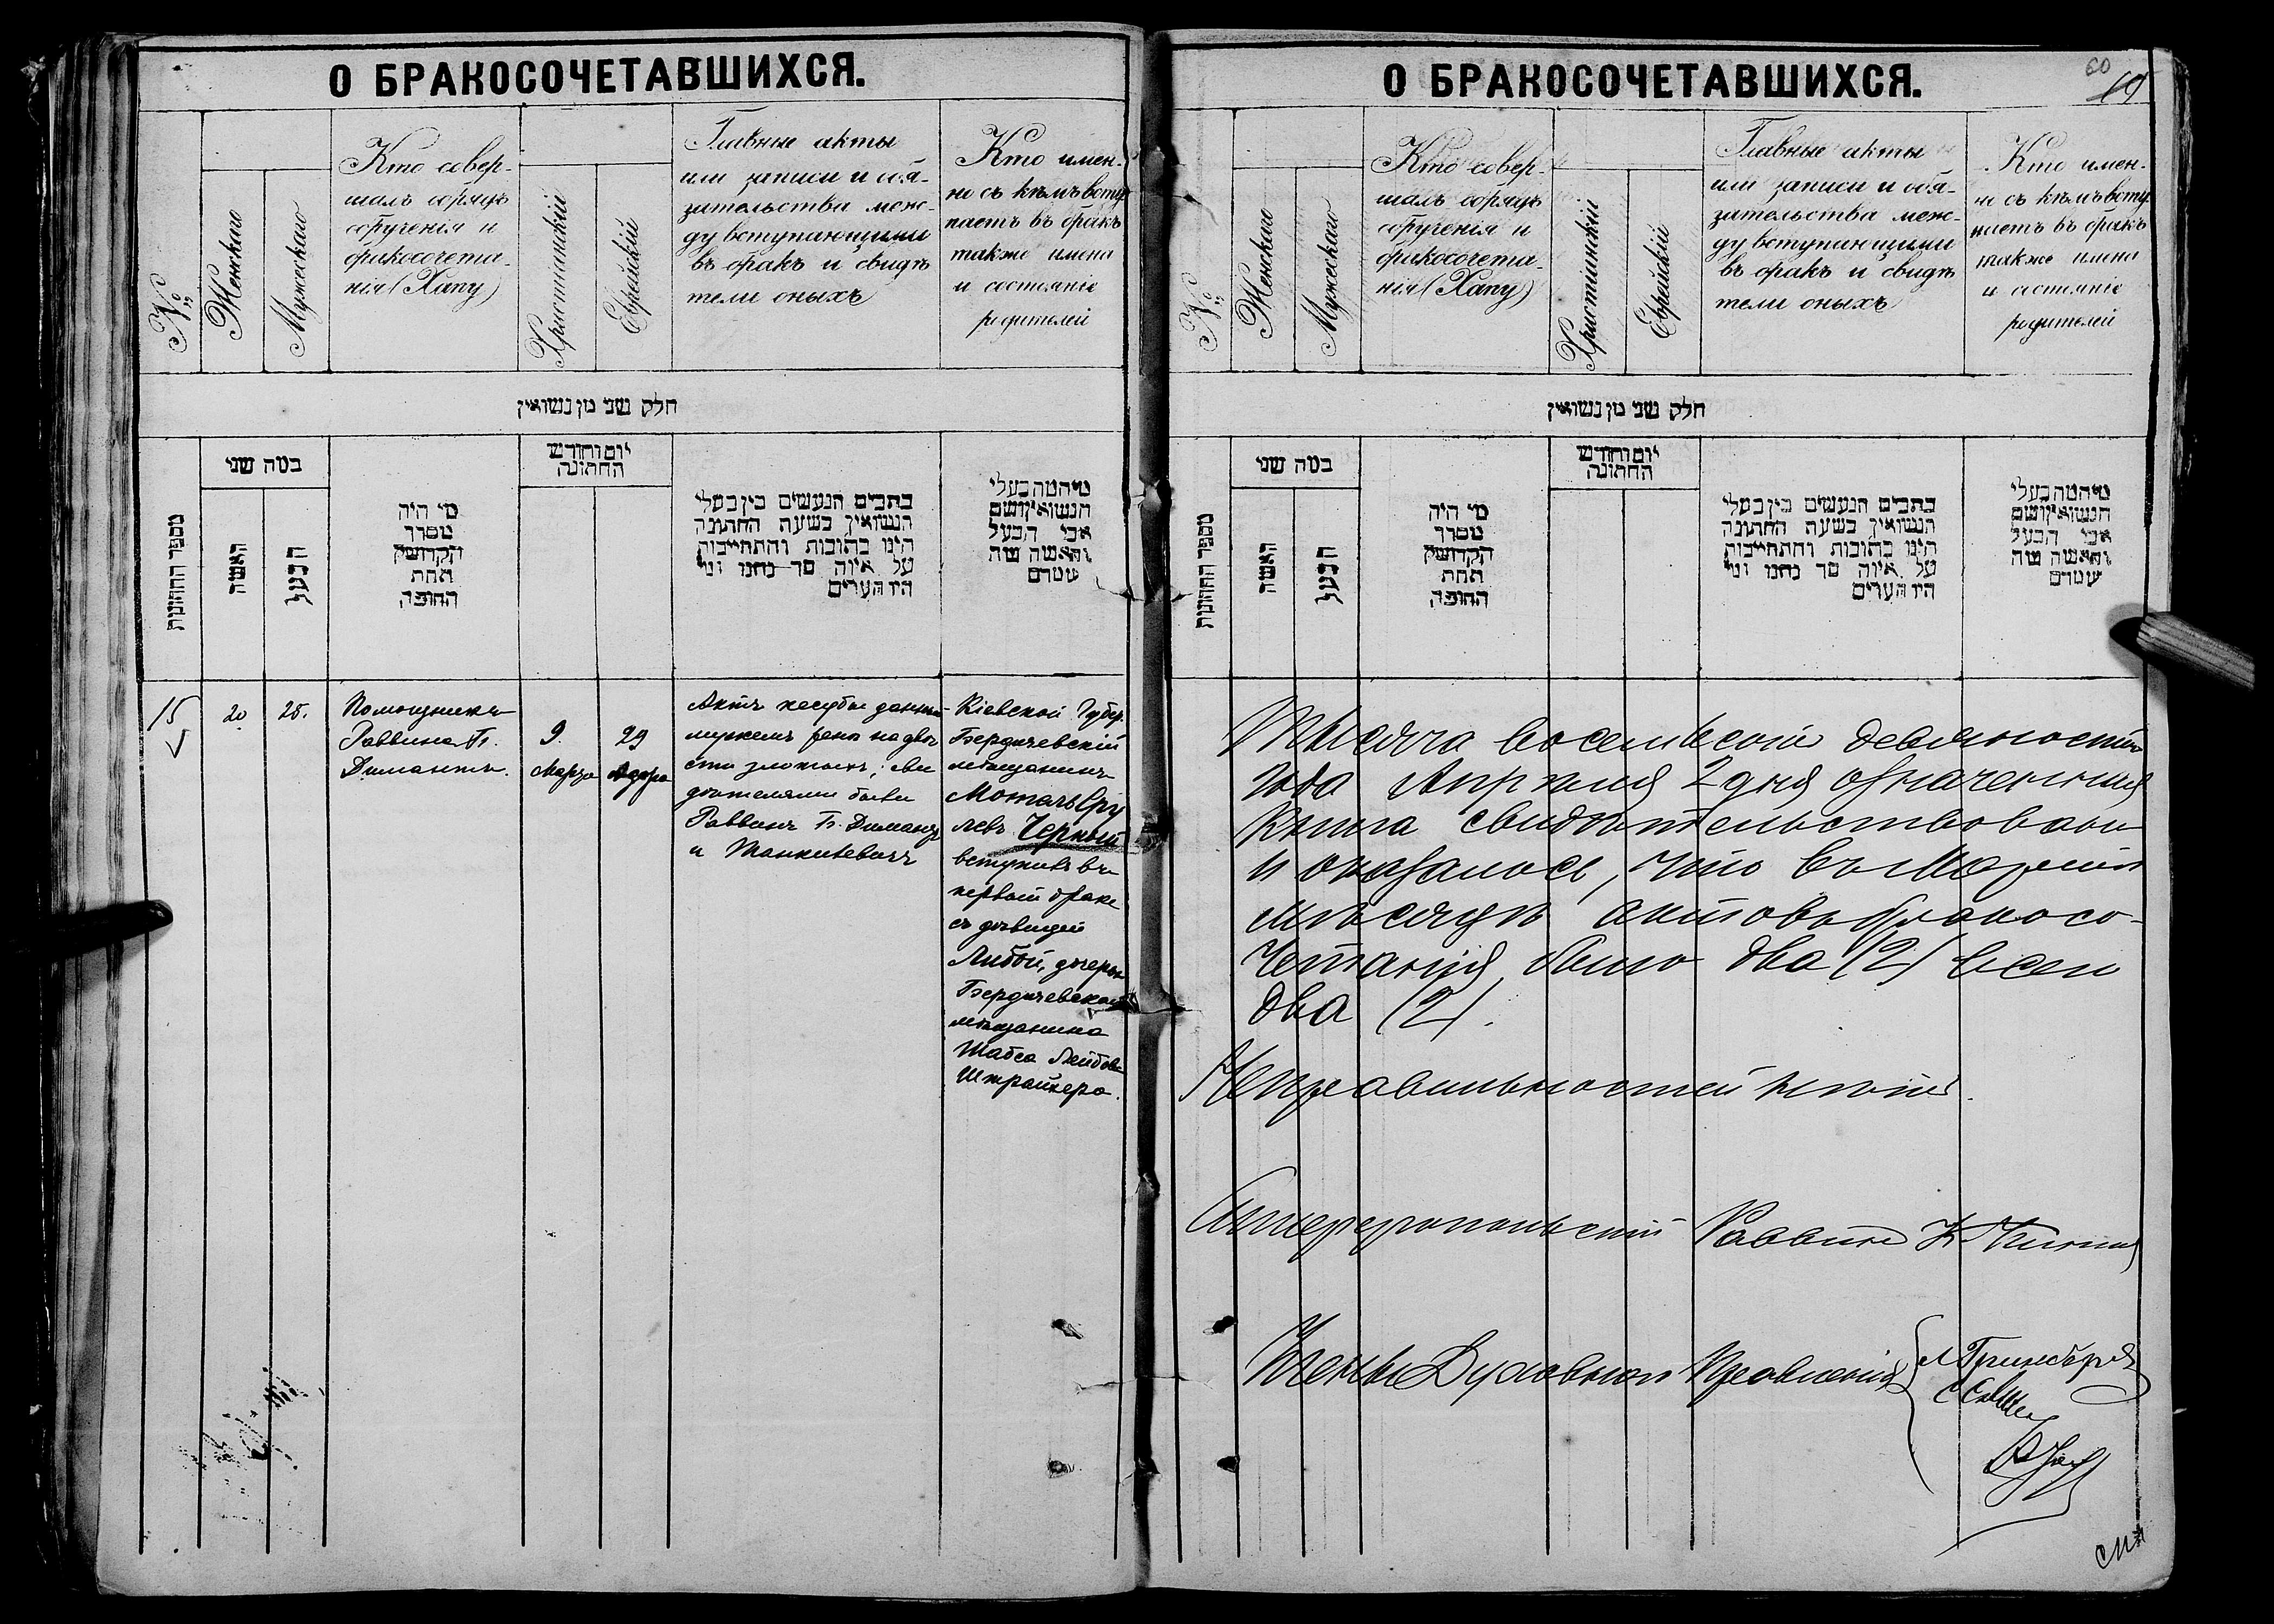 О БРАКОСОЧЕТАВШИХСЯ.
№
Женскаго
Мужескаго
Кто совер-
шалъ обрядъ
обрученія и
бракосочета-
нія (Хапу)
Христіанскій
Еврейскій
Главные акты
или записи и обя-
зательства меж-
ду вступающими
въ бракъ и свидѣ
тели оныхъ
Кто имен-
но съ кѣмъ всту
паетъ въ бракъ
также имена
и состояніе
родителей
חלק שני מן נשואין
מספר החתונות
כמה שני
האשה
הבעל
מי היה
מסדר
הקדושין
תחת
החופה
יום וחודש
החתונה
כתבים הנעשים בין בעלי
הנשואין בשעת החתונה
הינו כתובות והתחייבות
על איזה סך נתנו ומי
היו העדים
מי המה בעלי
הנשואין ושם
אבי הבעל
והאשה מה
שמדם
15
20
25.
Помощникъ
Раввина Б.
Димантъ.
9
Марта
29
Адара
Актъ кесубы данный
мужемъ женѣ на двѣ
сти злотыхъ; сви
дѣтелями были
Раввинъ Б. Димантъ
и
Кіевской Губер.
Бердичевскій
мѣщанинъ
Мотель Сру
левъ Черный
вступилъ въ
первый бракъ
съ дѣвицей
Либой, дочерью
Бердичевскаго
мѣщанина
Шабса Лейбова
Штрайхера.
О БРАКОСОЧЕТАВШИХСЯ.
60
№
Женскаго
Мужескаго
Кто совер-
шалъ обрядъ
обрученія и
бракосочета-
нія (Хапу)
Христіанскій
Еврейскій
Главные акты
или записи и обя-
зательства меж-
ду вступающими
въ бракъ и свидѣ
тели оныхъ
Кто имен-
но съ кѣмъ всту
паетъ въ бракъ
также имена
и состояніе
родителей
חלק שני מן נשואין
מספר החתונות
כמה שני
האשה
הבעל
מי היה
מסדר
הקדושין
תחת
החופה
יום וחודש
החתונה
כתבים הנעשים בין בעלי
הנשואין בשעת החתונה
הינו כתובות והתחייבות
על איזה סך נתנו ומי
היו העדים
מי המה בעלי
הנשואין ושם
אבי הבעל
והאשה מה
שמדם
Тысяча восемьсотъ девяностаго
года Апрѣля 2 дня означенная
книга свидѣтельствована
и оказалось, что въ Мартѣ
мѣсяцѣ актовъ бракосо-
четанія было два (2) всего
два (2).
Неправильностей нѣтъ.
Симферопольскій Раввинъ
Члены Духовнаго Правленія